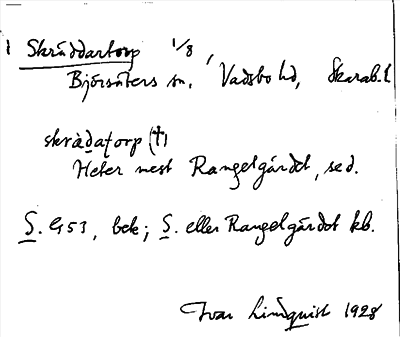 1 Skräddartorp 1/8,
Björsäters sn, Vadsbo hd, Skarab. l.
skrädatorp (†)
Heter mest Rangelgärdet, se d.
S. G53, bek; S. eller Rangelgärdet kb.
Ivar Lindquist 1928